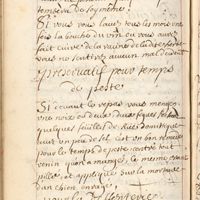 temsera de soy mesme /
Si vous vous lavez tous les mois une
fois la bouche du vin ou vous aurez
fait cuire de la racine de la dite herbe
vous ne sentirez aucun mal de dents
preservatif pour temps
de peste
Si devant le repas vous mengez
une noix ou deux, deux figues seches
quelques feuilles de Rue domestique
avec un peu de sel est un bon
pour les temps de peste contre tout
venin quon a mangé, le mesme
pillés, et appliqués sur la morsure
dun chien enragé,
pour la